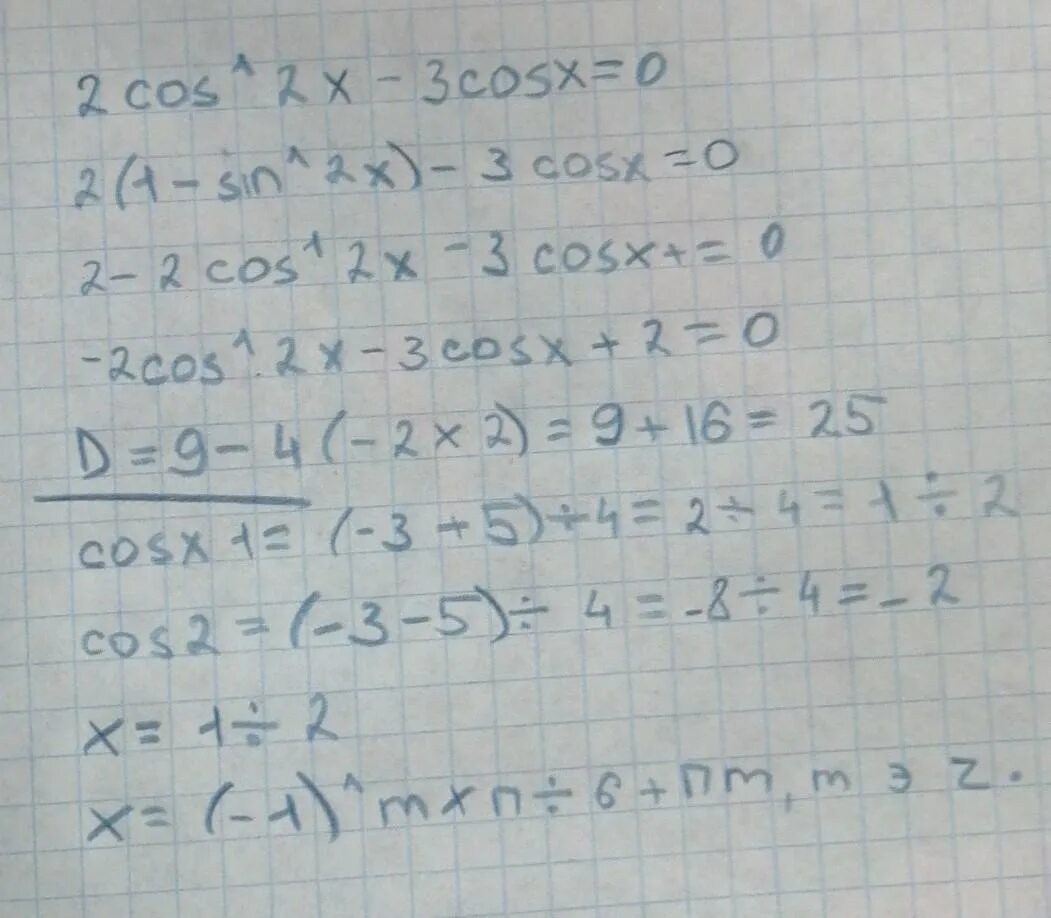 2 cos^2x - 3cosx = 0
2(1 - sin^2x) - 3 cosx = 0
2 - 2 cos^2x - 3 cosx + = 0
-2cos^.2x - 3cosx + 2 = 0
D = 9 - 4 (-2 × 2) = 9 + 16 = 25
cosx 1 = (-3 + 5) ÷ 4 = 2 ÷ 4 = 1 ÷ 2
cos2 = (-3 - 5) ÷ 4 = -8 ÷ 4 = -2
x = 1 ÷ 2
x = (-1)^m × п ÷ 6 + пm, m э z.